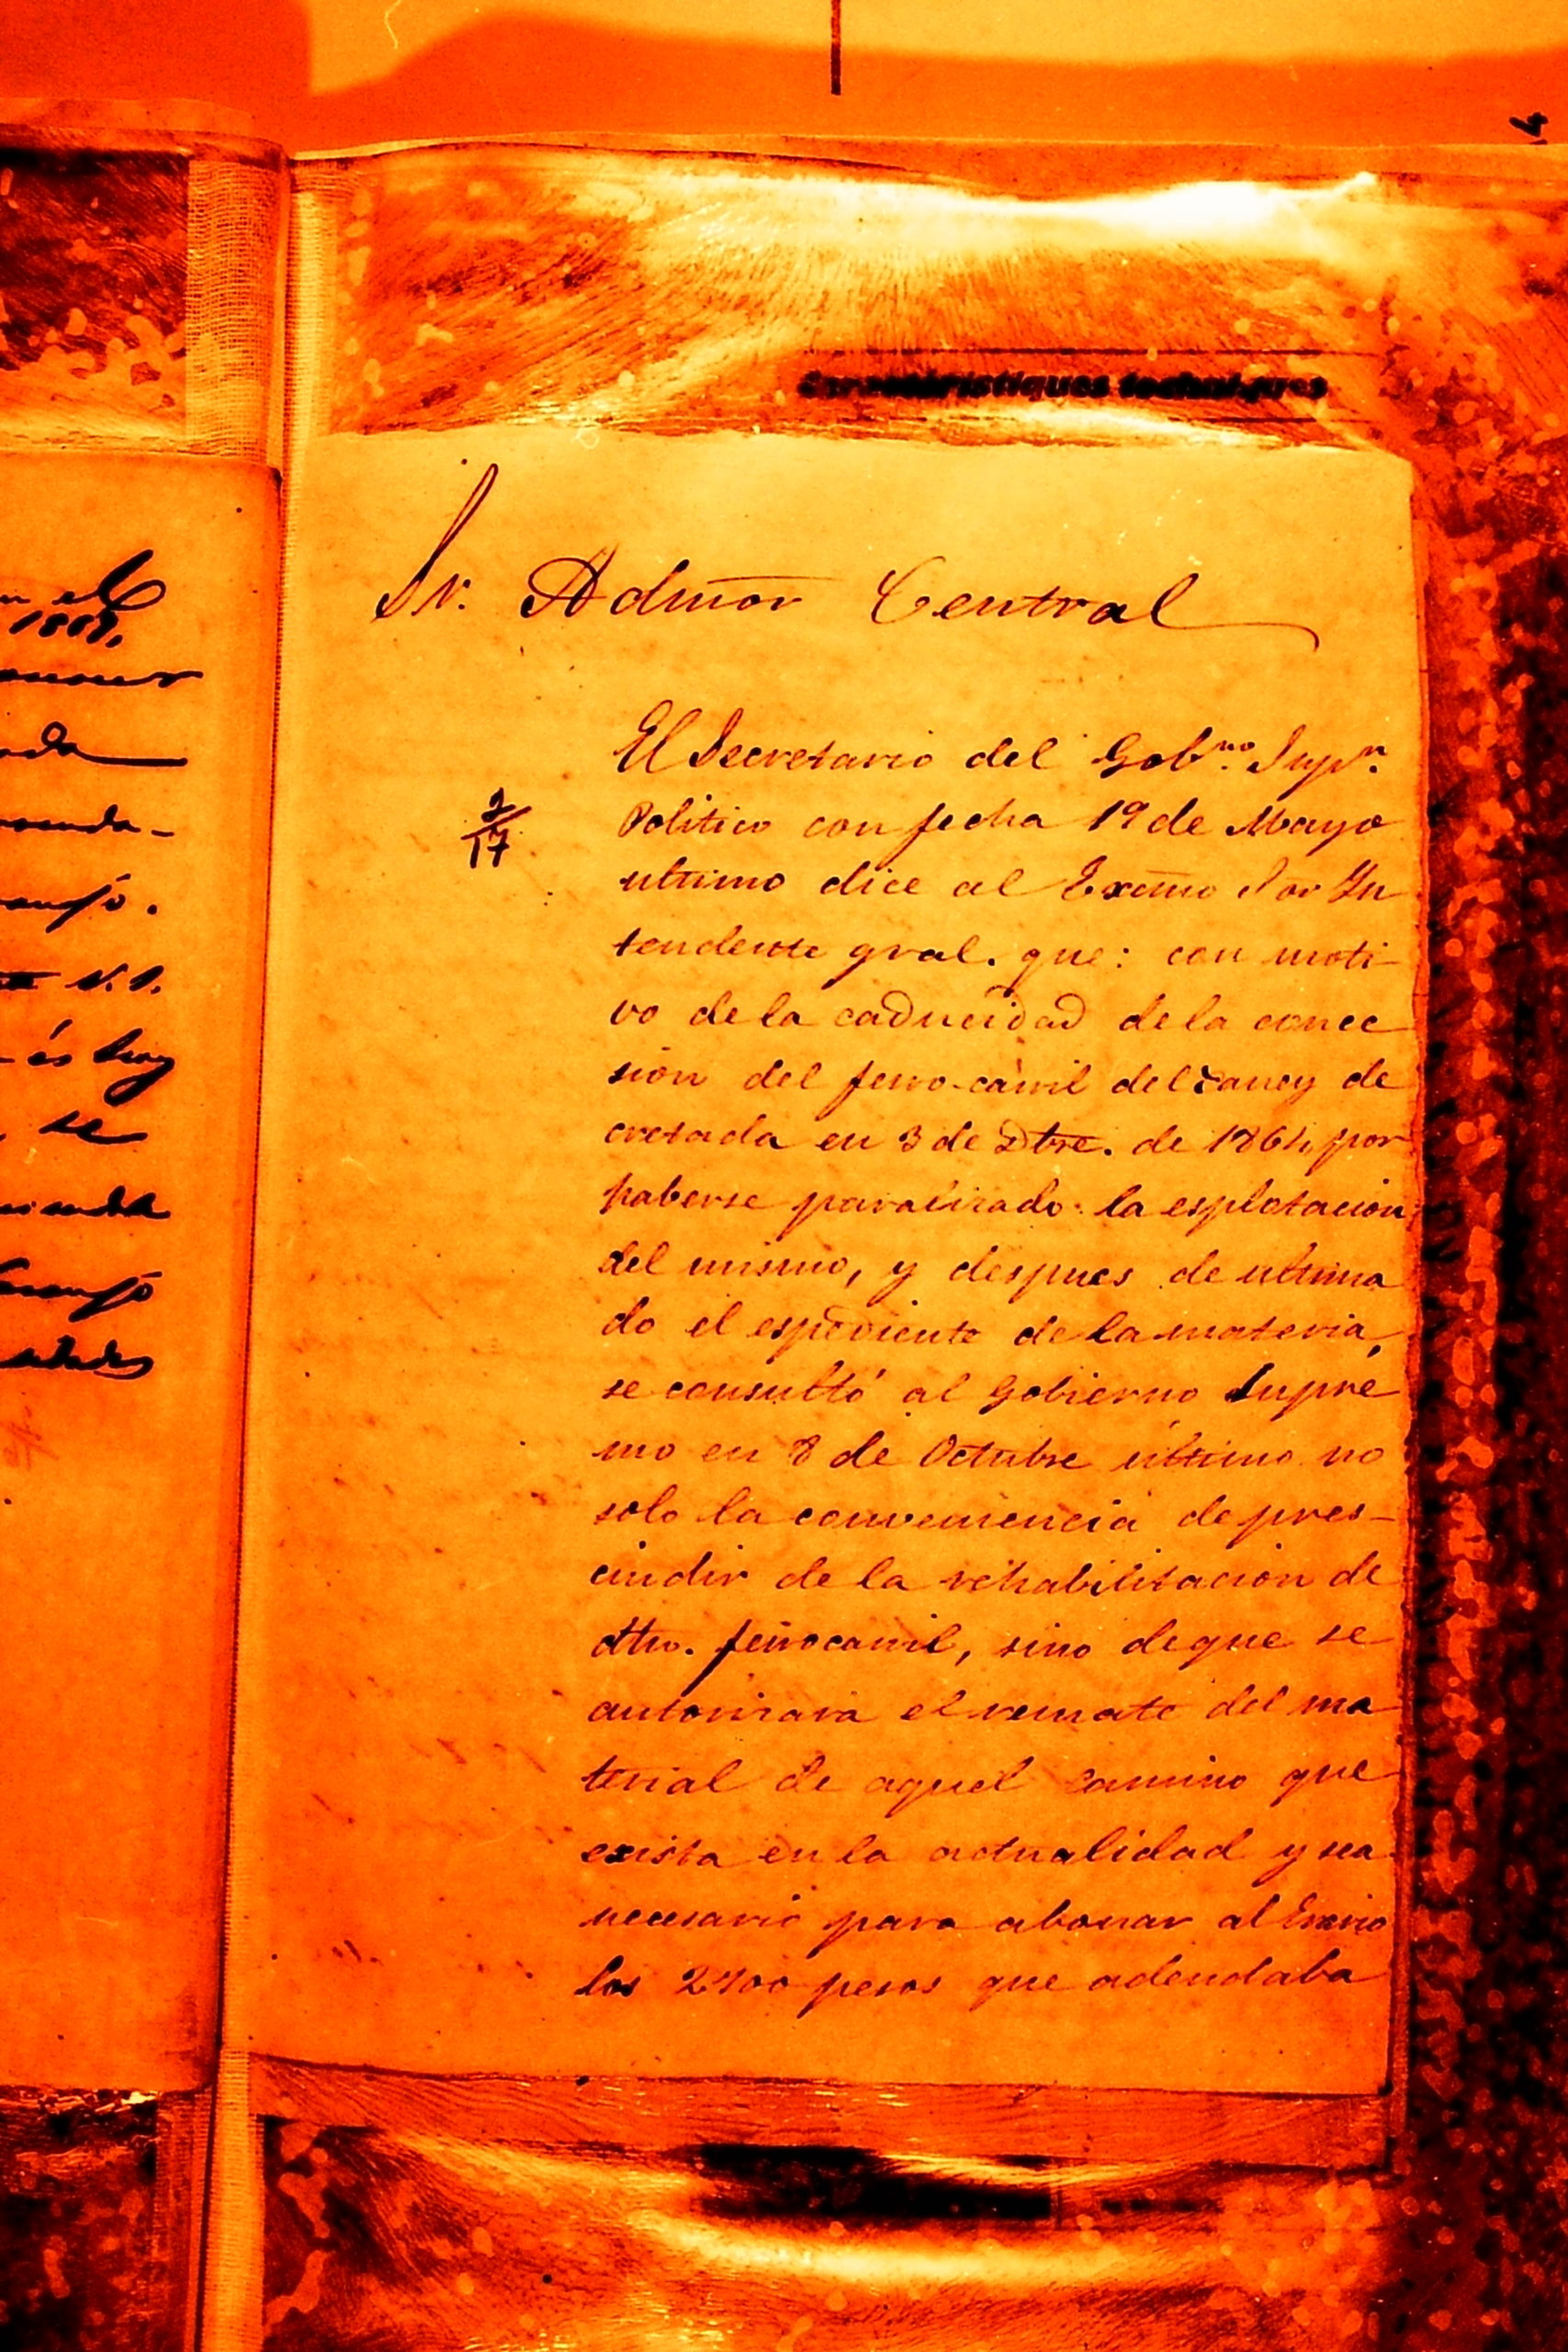 n el
1867,
ada
rando.
V. S.
és hoy
se
Caractéristiques techniques
Sr. Admor Central
2/17
El Secretario del Gobno. Supr.
Politico con fecha 19 de Mayo
ultimo dice al Excmo Sor In
tendente gral. que: con moti-
vo de la caducidad de la conce
sion del ferro-carril del Caney de
cretada en 3 de Dbre. de 1864, por
haberse paralizado la esplotacion
del mismo, y despues de ultima
do el espediente de la materia,
se consultó al Gobierno Supre
mo en 8 de Octubre último no
solo la conveniencia de pres-
cindir de la rehabilitacion de
dho. ferrocarril, sino de que se
autorizara el remate del ma
terial de aquel camino que
exista en la actualidad y sea
necesario para abonar al Erario
los 2400 pesos que adeudaba